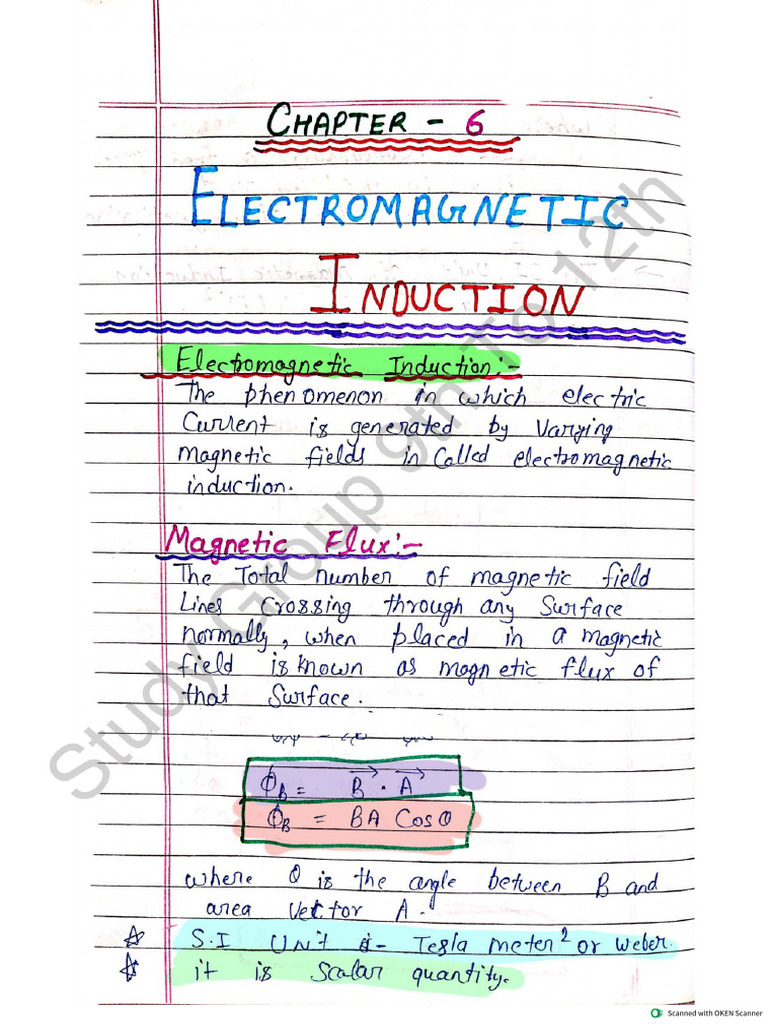 CHAPTER - 6
ELECTROMAGNETIC
INDUCTION
Electromagnetic Induction:-
The phenomenon in which electric
Current is generated by Varying
magnetic fields in Called electromagnetic
induction.
Magnetic Flux:-
The Total number of magnetic field
Lines Crossing through any Surface
normally, when placed in a magnetic
field is known as magnetic flux of
that Surface.
ϕB = B⃗ . A⃗
ϕB = BA Cosθ
where θ is the angle between B and
area Vector A.
☆ S.I Unit :- Tesla meter² or weber.
☆ it is Scalar quantity.
Study Group 9th To 12th
Scanned with OKEN Scanner